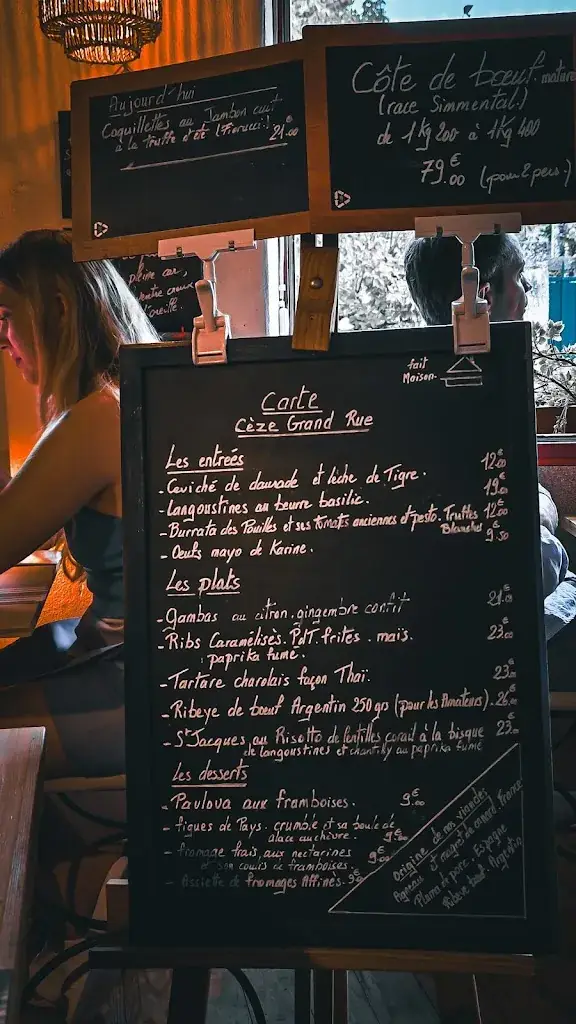 Aujourd'hui
Coquillettes au Jambon cuit
à la truffe d'été (Fiorucci) 21.00
Côte de bœuf. mature
(race Simmental.)
de 1kg200 à 1kg400
79.€00 (pour 2 pers.)
pleine car,
ventre creux
l'oreille.
fait
Maison.
Carte
Cèze Grand Rue
Les entrées
- Ceviché de daurade et lèche de Tigre. 12€00
- Langoustines au beurre basilic. 19€
- Burrata des Pouilles et ses tomates anciennes et pesto. Truffes 12€00
Blanches
- Oeufs mayo de Karine. 9€50
Les plats
- Gambas au citron, gingembre confit 21.€00
- Ribs Caramélisés. PdT. frites. maïs. 23€00
paprika fumé.
- Tartare charolais façon Thaï. 23€
- Ribeye de bœuf Argentin 250grs (pour les Amateurs). 26€00
- St Jacques au Risotto de lentilles corail à la bisque 23€
de langoustines et chantilly au paprika fumé
Les desserts
- Pavlova aux framboises. 9€00
- figues de Pays. crumble et sa boule de
glace au chèvre. 9€00
- fromage frais, aux nectarines
et son coulis de framboises. 9€00
- Assiette de fromages Affinés. 9€
Origine de nos viandes
et magret de canard. France
Pluma de porc. Espagne
Ribeye bœuf. Argentin